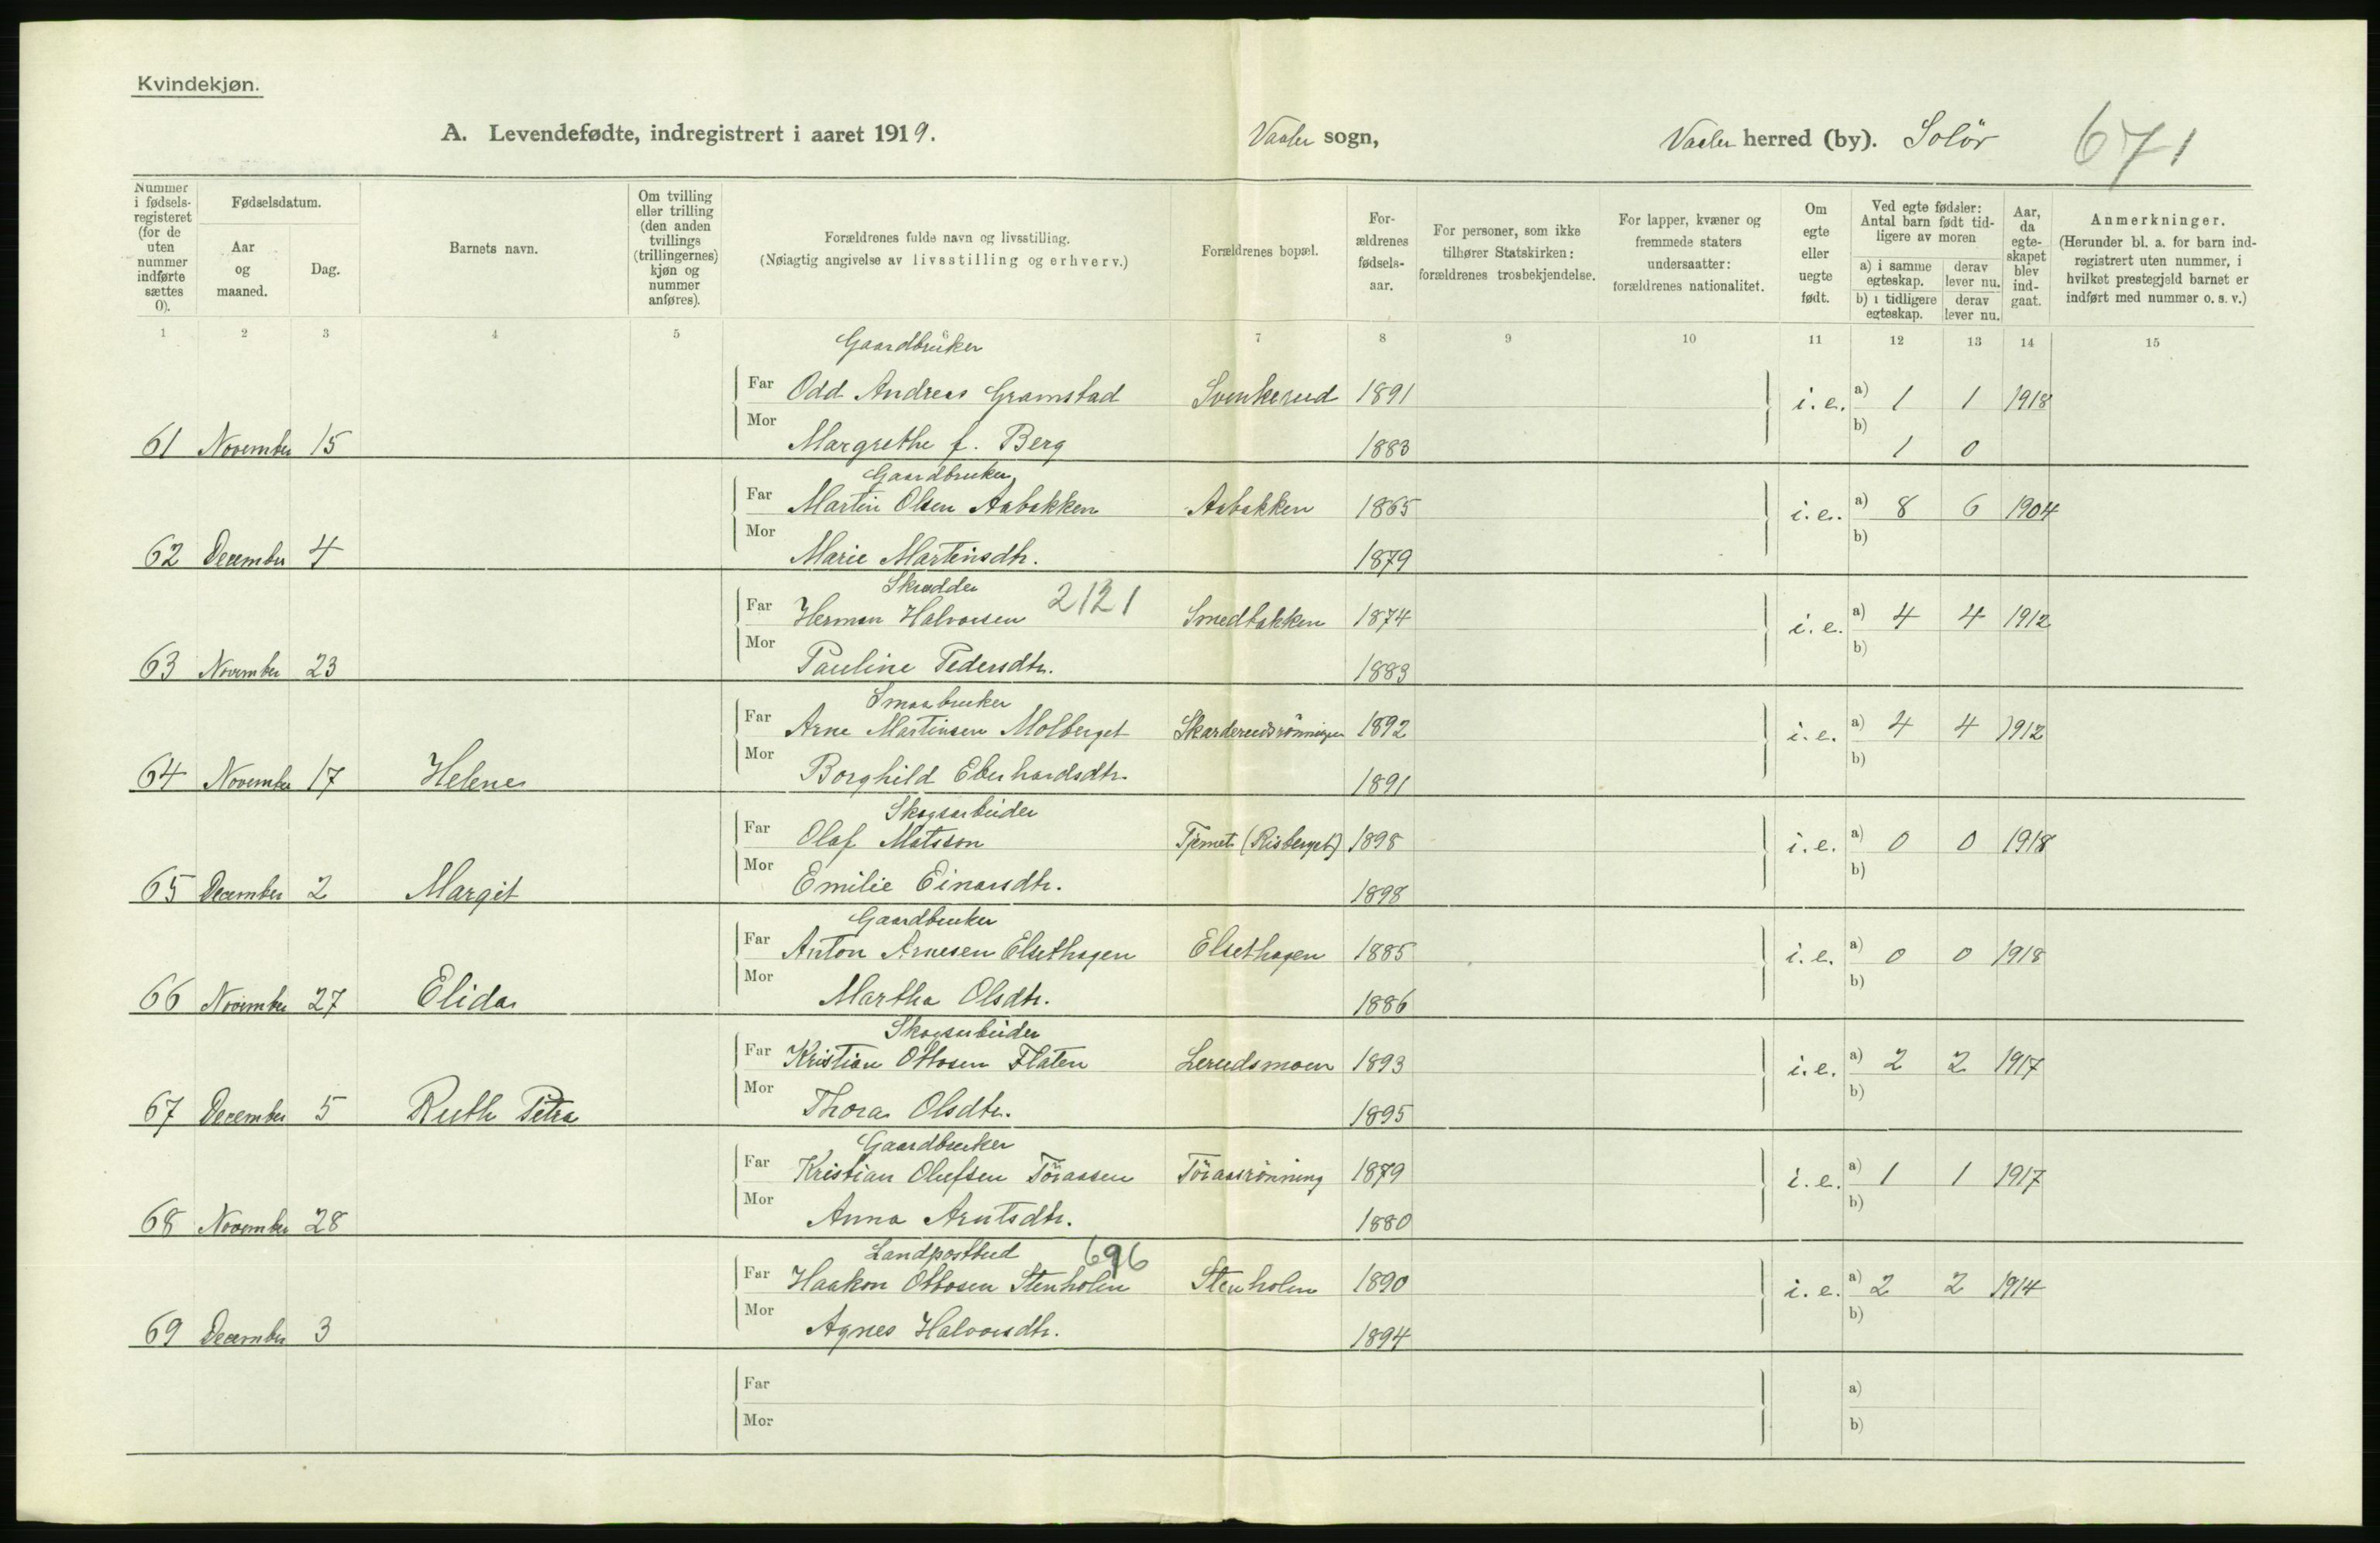 Kvindekjøn.
A. Levendefødte, indregistrert i aaret 1919.
Vaaler sogn,
Vaaler herred (by). Solör
671
Nummer i fødsels-registeret (for de uten nummer indførte sættes 0).
Fødselsdatum.
Aar og maaned.
Dag.
Barnets navn.
Om tvilling eller trilling (den anden tvillings (trillingernes) kjøn og nummer anføres).
Forældrenes fulde navn og livsstilling.
(Nøiagtig angivelse av livsstilling og erhverv.)
Forældrenes bopæl.
For-ældrenes fødsels-aar.
For personer, som ikke tilhører Statskirken: forældrenes trosbekjendelse.
For lapper, kvæner og fremmede staters undersaatter: forældrenes nationalitet.
Om egte eller uegte født.
Ved egte fødsler: Antal barn født tid-ligere av moren
a) i samme egteskap.
derav lever nu.
b) i tidligere egteskap.
derav lever nu.
Aar, da egte-skapet blev ind-gaat.
Anmerkninger.
(Herunder bl. a. for barn ind-registrert uten nummer, i hvilket prestegjeld barnet er indført med nummer o. s. v.)
1 2 3 4 5 6 7 8 9 10 11 12 13 14 15
Gaardbruker
Far Odd Andreas Gramstad Svenkerud 1891 i. e. a) 1 1 1918
Mor b)
61 November 15 Margrethe f. Berg 1883 1 0
Gaardbruker
Far Martin Olsen Aabakken Aabakken 1865 i. e. a) 8 6 1904
Mor b)
62 December 4 Marie Martinsdtr. 1879
Skrædder 2121
Far Herman Halvorsen Smedbakken 1874 i. e. a) 4 4 1912
Mor b)
63 November 23 Pauline Pedersdtr. 1883
Smaabruker
Far Arne Martinsen Molberget Skarderudsrönningen 1892 i. e. a) 4 4 1912
Mor b)
64 November 17 Helene Borghild Eberhardsdtr. 1891
Skogsarbeider
Far Olaf Matsson (Risberget) 1898 i. e. a) 0 0 1918
Mor b)
65 December 2 Margit Emilie Einarsdtr. 1898
Gaardbruker
Far Anton Arnesen Elsethagen Elsethagen 1885 i. e. a) 0 0 1918
Mor b)
66 November 27 Elida Martha Olsdtr. 1886
Skogsarbeider
Far Kristian Ottosen Flaten Lerudsmoen 1893 i. e. a) 2 2 1917
Mor b)
67 December 5 Ruth Petra Thora Olsdtr. 1895
Gaardbruker
Far Kristian Olufsen Töraasen Töraasrönning 1879 i. e. a) 1 1 1917
Mor b)
68 November 28 Anna Arntsdtr. 1880
Landpostbud 696
Far Haakon Ottosen Stenholen Stenholen 1890 i. e. a) 2 2 1914
Mor b)
69 December 3 Agnes Halvorsdtr. 1894
Far a)
Mor b)